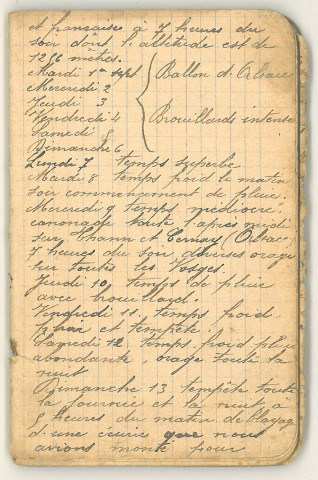 et française à 7 heures du
soir dont l'altitude est de
1256 mètres.
Mardi 1er sept Ballon d'Alsace
Mercredi 2
Jeudi 3
Vendredi 4 Brouillards intense
Samedi 5
Dimanche 6
Lundi 7 temps superbe
Mardi 8 temps froid le matin
soir commencement de pluie.
Mercredi 9 temps médiocre.
canonade toute l'après midi
sur Thann et Cernay (Alsace)
7 heures du soir, diverses orages
sur toutes les Vosges.
Jeudi 10, temps de pluie
avec brouillard.
Vendredi 11. temps froid
pluie et tempête.
Samedi 12 temps froid pluie
abondante, orage toute la
nuit
Dimanche 13 tempête toute
la journée et la nuit à
5 heures du matin déblayage
d'une écurie que nous
avions monté pour